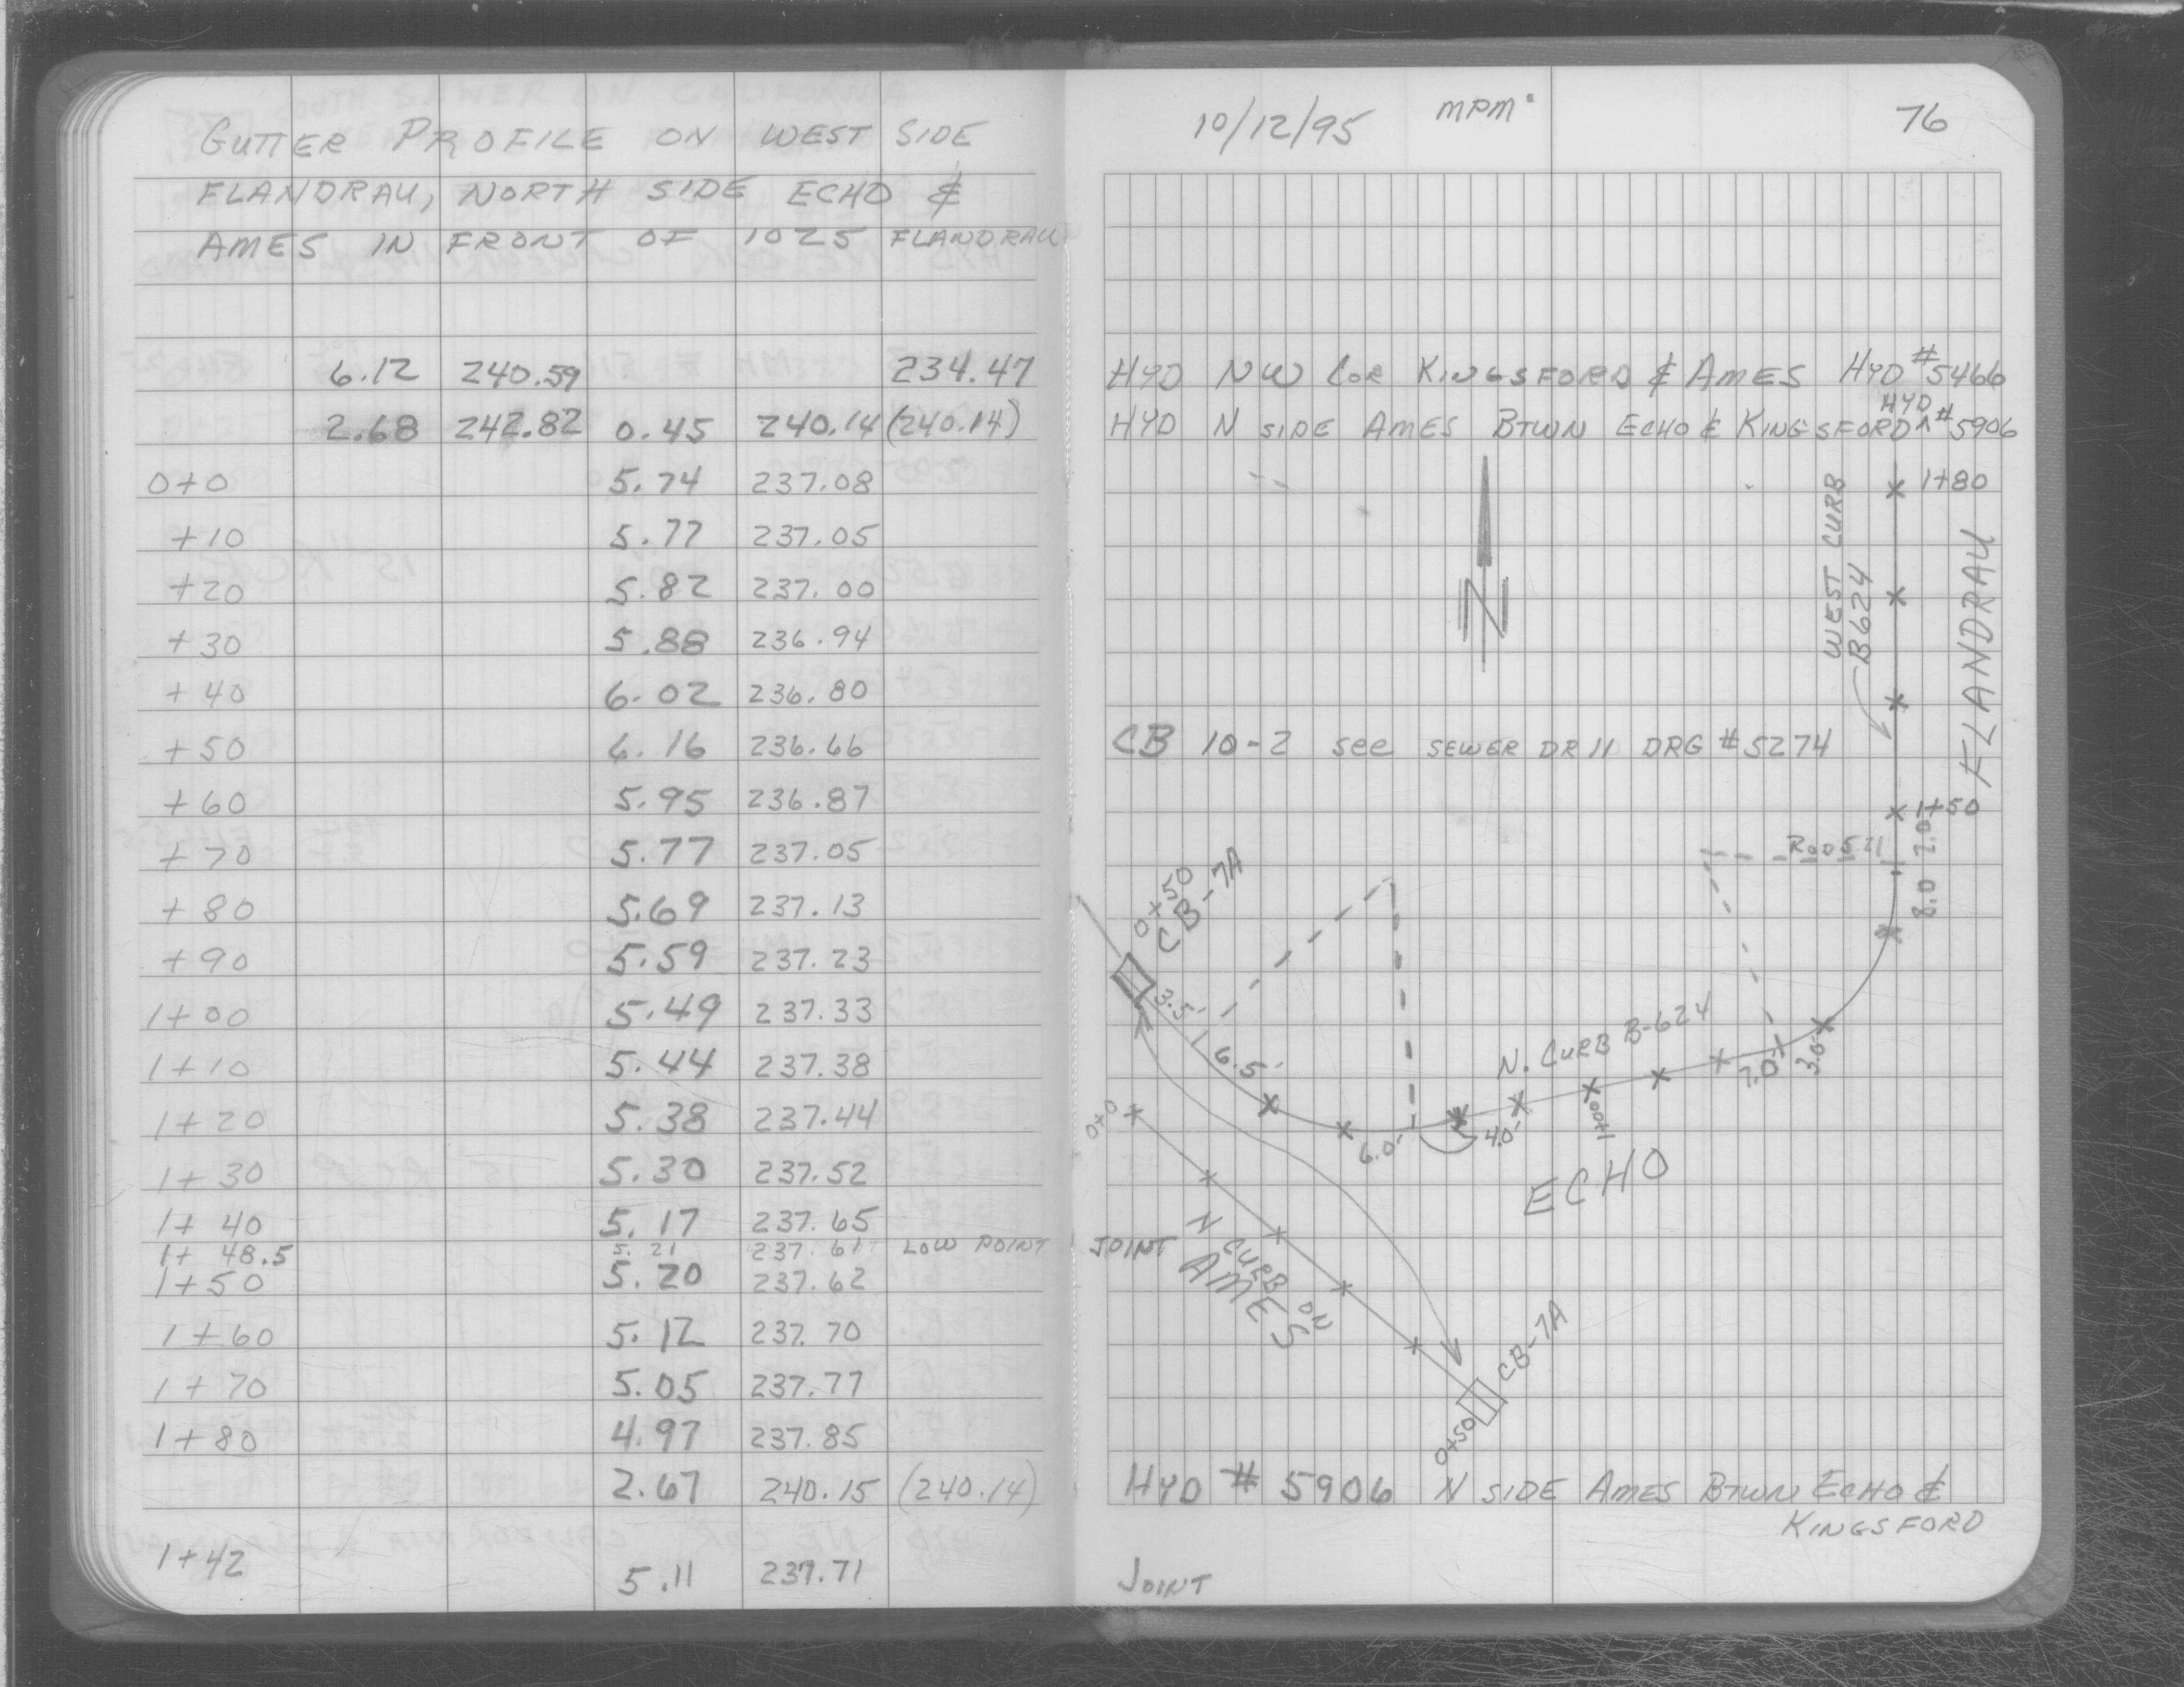 GUTTER PROFILE ON WEST SIDE
FLANDRAU, NORTH SIDE ECHO &
AMES IN FRONT OF 1025 FLANDRAU
6.12 240.59 234.47
2.68 242.82 0.45 240.14 (240.14)
0+0 5.74 237.08
+10 5.77 237.05
+20 5.82 237.00
+30 5.88 236.94
+40 6.02 236.80
+50 6.16 236.66
+60 5.95 236.87
+70 5.77 237.05
+80 5.69 237.13
+90 5.59 237.23
1+00 5.49 237.33
1+10 5.44 237.38
1+20 5.38 237.44
1+30 5.30 237.52
1+40 5.17 237.65
1+48.5 5.21 237.61 LOW POINT JOINT
1+50 5.20 237.62
1+60 5.12 237.70
1+70 5.05 237.77
1+80 4.97 237.85
2.67 240.15 (240.14)
1+42 5.11 237.71 JOINT
10/12/95 MPM 76
HYD NW COR KINGSFORD & AMES HYD #5466
HYD N SIDE AMES BTWN ECHO & KINGSFORD HYD #5906
1+80
WEST CURB
B624
FLANDRAU
CB 10-2 see SEWER DR 11 DRG #5274
1+50
2.0
ROD 5.21
8.0
0+50
CB-7A
3.5'
6.5'
N. CURB B-624
7.0
3.0
6.0'
4.0'
1+00
ECHO
0+0
N CURB ON
AMES
CB-7A
0+50
HYD # 5906 N SIDE AMES BTWN ECHO &
KINGSFORD
N